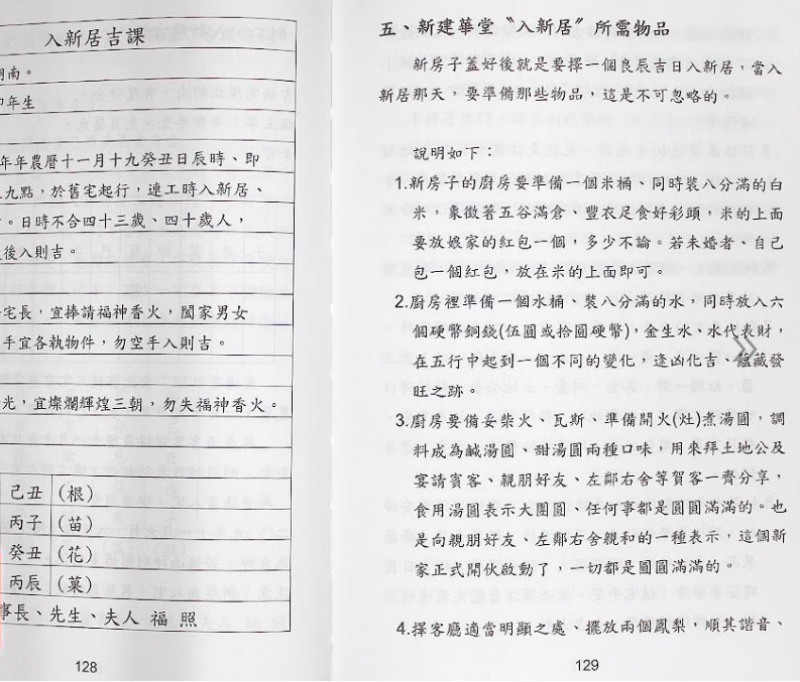 入新居吉課
南。
年生
年年農曆十一月十九癸丑日辰時、即
九點，於舊宅起行，連工時入新居、
。日時不合四十三歲、四十歲人，
後入則吉。
宅長，宜捧請福神香火，闔家男女
手宜各執物件，勿空手入則吉。
光，宜燦爛輝煌三朝，勿失福神香火。
己丑 (根)
丙子 (苗)
癸丑 (花)
丙辰 (菓)
事長、先生、夫人 福 照
128
五、新建華堂〝入新居〞所需物品
新房子蓋好後就是要擇一個良辰吉日入新居，當入
新居那天，要準備那些物品，這是不可忽略的。
說明如下：
1.新房子的廚房要準備一個米桶、同時裝八分滿的白
米，象徵著五谷滿倉、豐衣足食好彩頭，米的上面
要放娘家的紅包一個，多少不論。若未婚者、自己
包一個紅包，放在米的上面即可。
2.廚房裡準備一個水桶、裝八分滿的水，同時放入六
個硬幣銅錢(伍圓或拾圓硬幣)，金生水，水代表財，
在五行中起到一個不同的變化，逢凶化吉、蘊藏發
旺之跡。
3.廚房要備妥柴火、瓦斯、準備開火(灶)煮湯圓，調
料成為鹹湯圓、甜湯圓兩種口味，用來拜土地公及
宴請賓客、親朋好友、左鄰右舍等賀客一齊分享，
食用湯圓表示大團圓、任何事都是圓圓滿滿的。也
是向親朋好友、左鄰右舍親和的一種表示，這個新
家正式開伙啟動了，一切都是圓圓滿滿的。
4.擇客廳適當明顯之處、擺放兩個鳳梨，順其諧音、
129